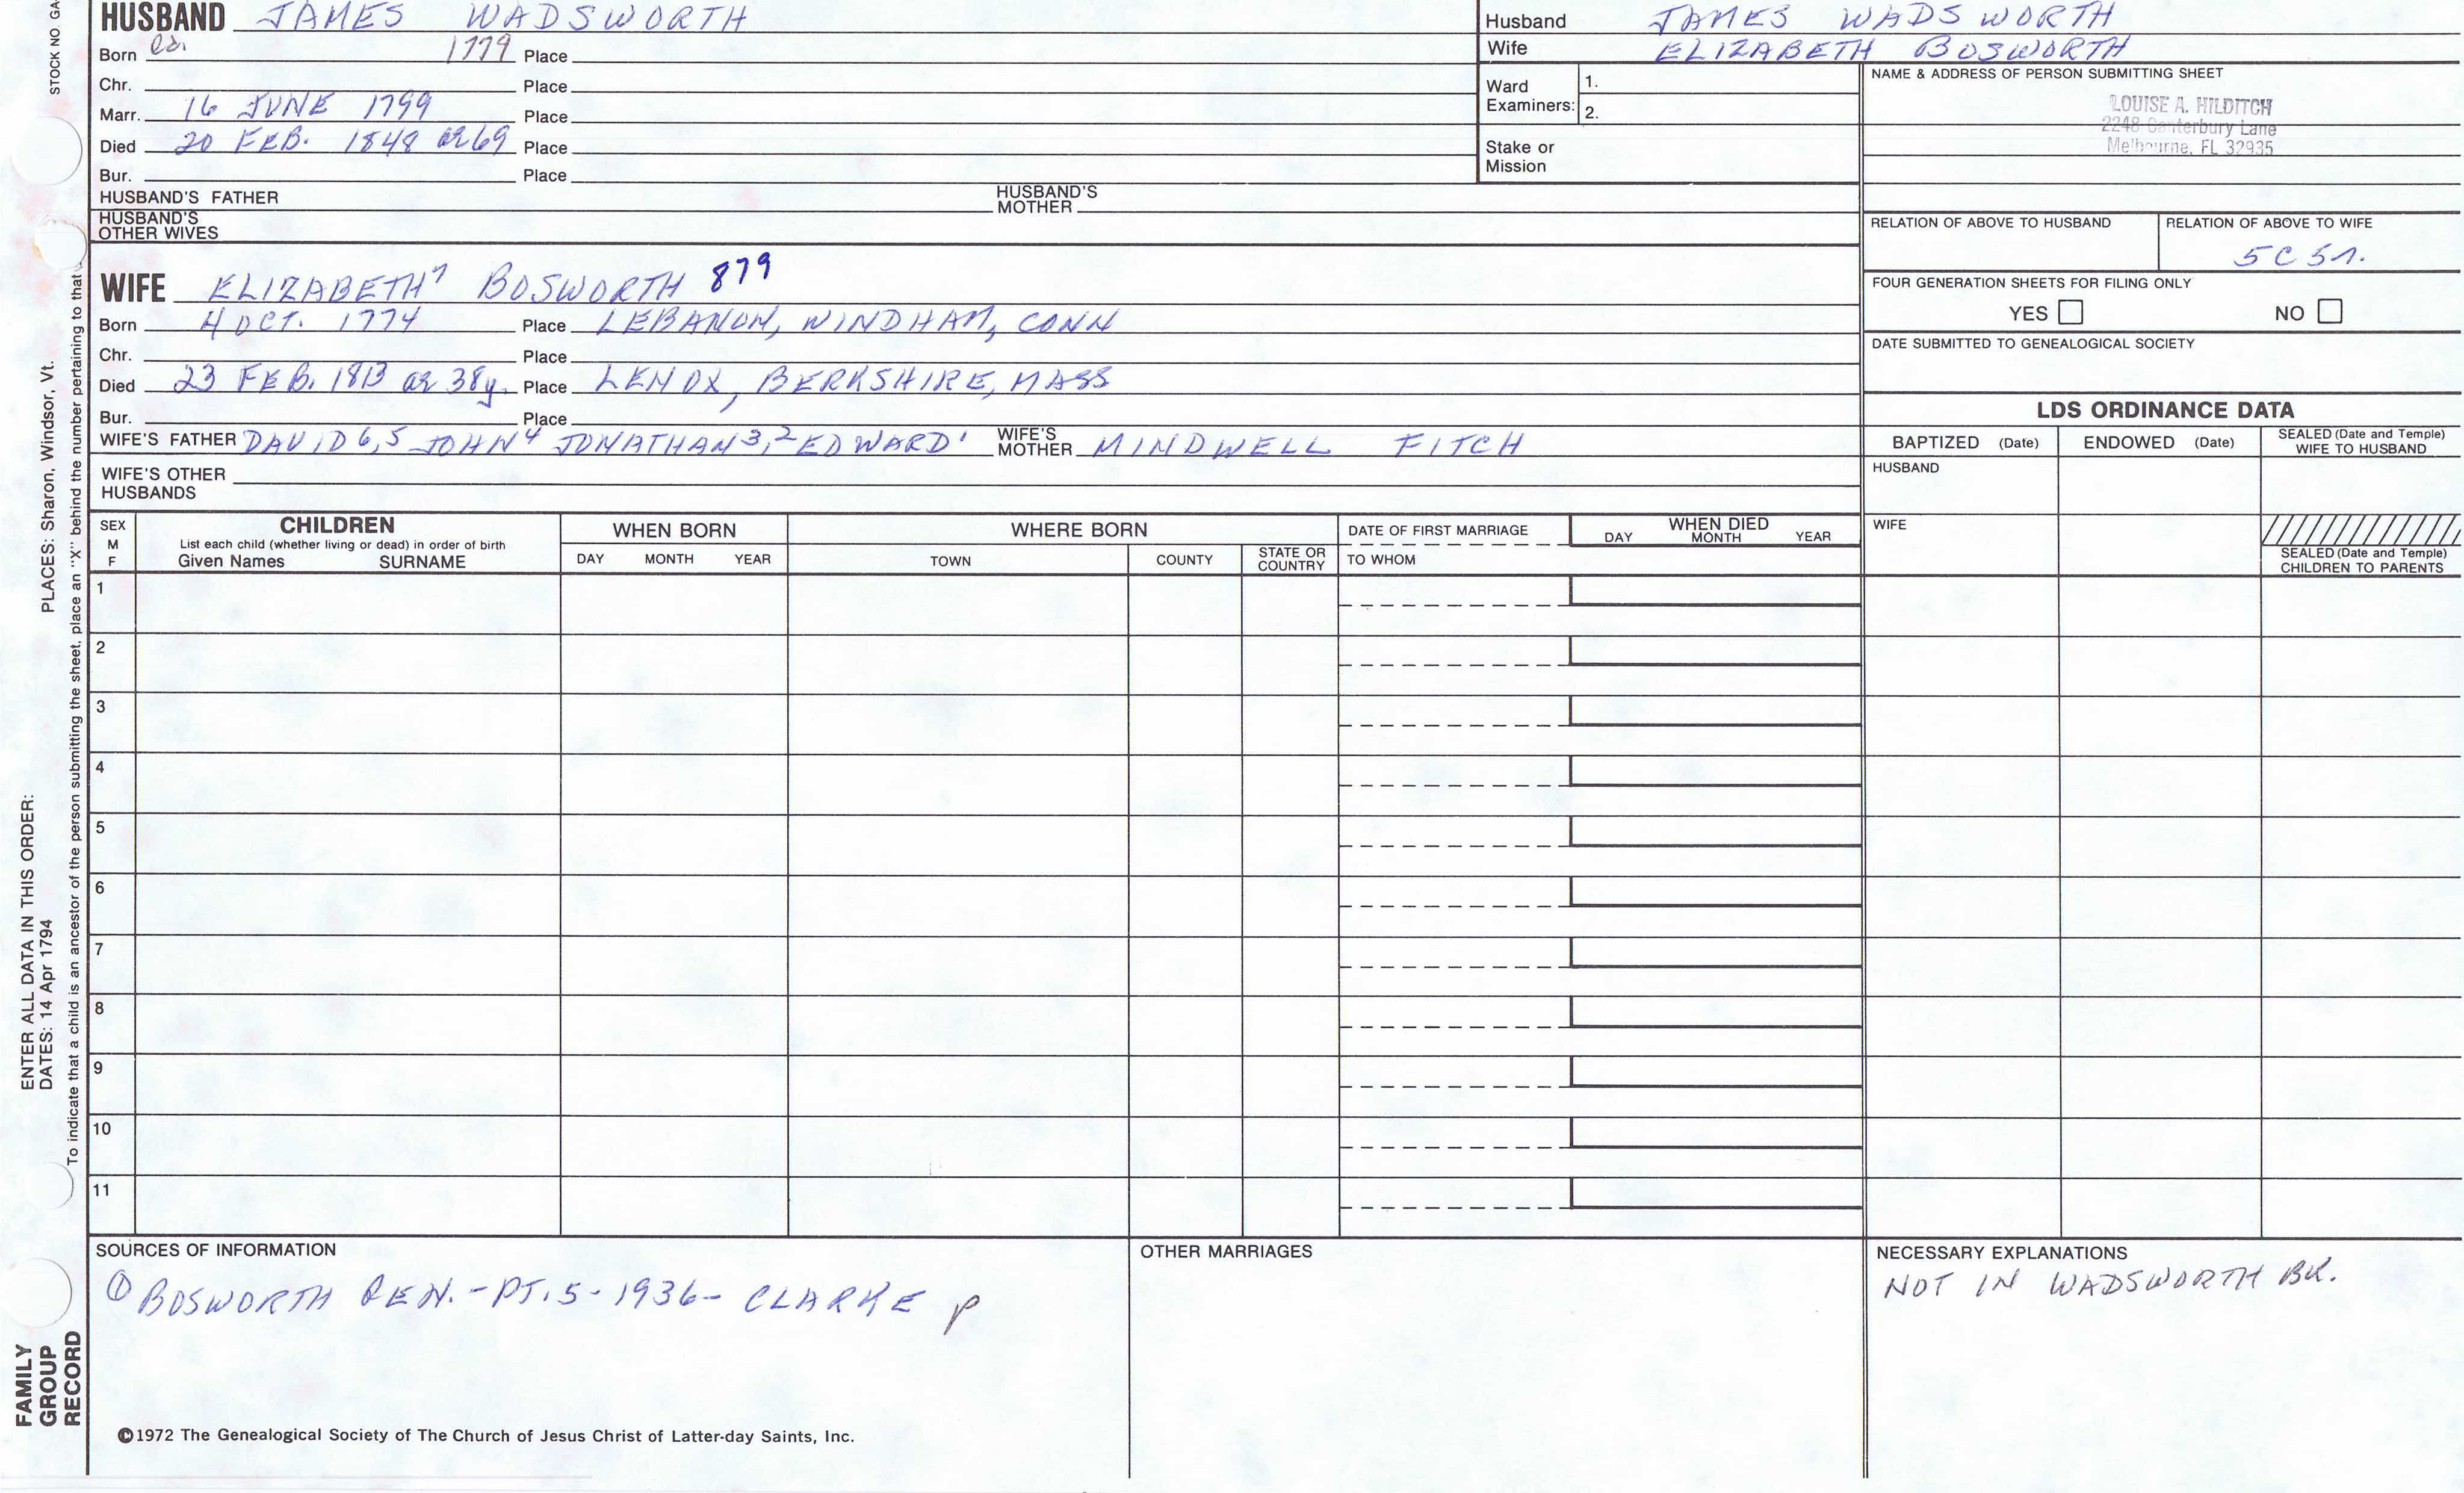 STOCK NO. GA
HUSBAND JAMES WADSWORTH
Born ca. 1779 Place
Chr. Place
Marr. 16 JUNE 1799 Place
Died 20 FEB. 1848 ae 69 Place
Bur. Place
HUSBAND'S FATHER HUSBAND'S MOTHER
HUSBAND'S OTHER WIVES
Husband JAMES WADSWORTH
Wife ELIZABETH BOSWORTH
Ward Examiners: 1.
2.
Stake or Mission
NAME & ADDRESS OF PERSON SUBMITTING SHEET
LOUISE A. HILDITCH
2248 Canterbury Lane
Melbourne, FL 32935
RELATION OF ABOVE TO HUSBAND
RELATION OF ABOVE TO WIFE
5C 5
FOUR GENERATION SHEETS FOR FILING ONLY
YES NO
DATE SUBMITTED TO GENEALOGICAL SOCIETY
WIFE ELIZABETH7 BOSWORTH 879
Born 4 OCT. 1774 Place LEBANON, WINDHAM, CONN
Chr. Place
Died 23 FEB. 1813 ae 38y. Place LENOX, BERKSHIRE, MASS
Bur. Place
WIFE'S FATHER DAVID6,5 JOHN4 JONATHAN3,2 EDWARD1 WIFE'S MOTHER MINDWELL FITCH
WIFE'S OTHER HUSBANDS
LDS ORDINANCE DATA
BAPTIZED (Date) ENDOWED (Date) SEALED (Date and Temple) WIFE TO HUSBAND
HUSBAND
WIFE
SEALED (Date and Temple) CHILDREN TO PARENTS
SEX M F
CHILDREN
List each child (whether living or dead) in order of birth
Given Names SURNAME
WHEN BORN
DAY MONTH YEAR
WHERE BORN
TOWN COUNTY STATE OR COUNTRY
DATE OF FIRST MARRIAGE
TO WHOM
WHEN DIED
DAY MONTH YEAR
1
2
3
4
5
6
7
8
9
10
11
SOURCES OF INFORMATION
① BOSWORTH GEN. - PT. 5 - 1936 - CLARKE p
OTHER MARRIAGES
NECESSARY EXPLANATIONS
NOT IN WADSWORTH BK.
©1972 The Genealogical Society of The Church of Jesus Christ of Latter-day Saints, Inc.
FAMILY GROUP RECORD
ENTER ALL DATA IN THIS ORDER:
DATES: 14 Apr 1794 PLACES: Sharon, Windsor, Vt.
To indicate that a child is an ancestor of the person submitting the sheet, place an "X" behind the number pertaining to that